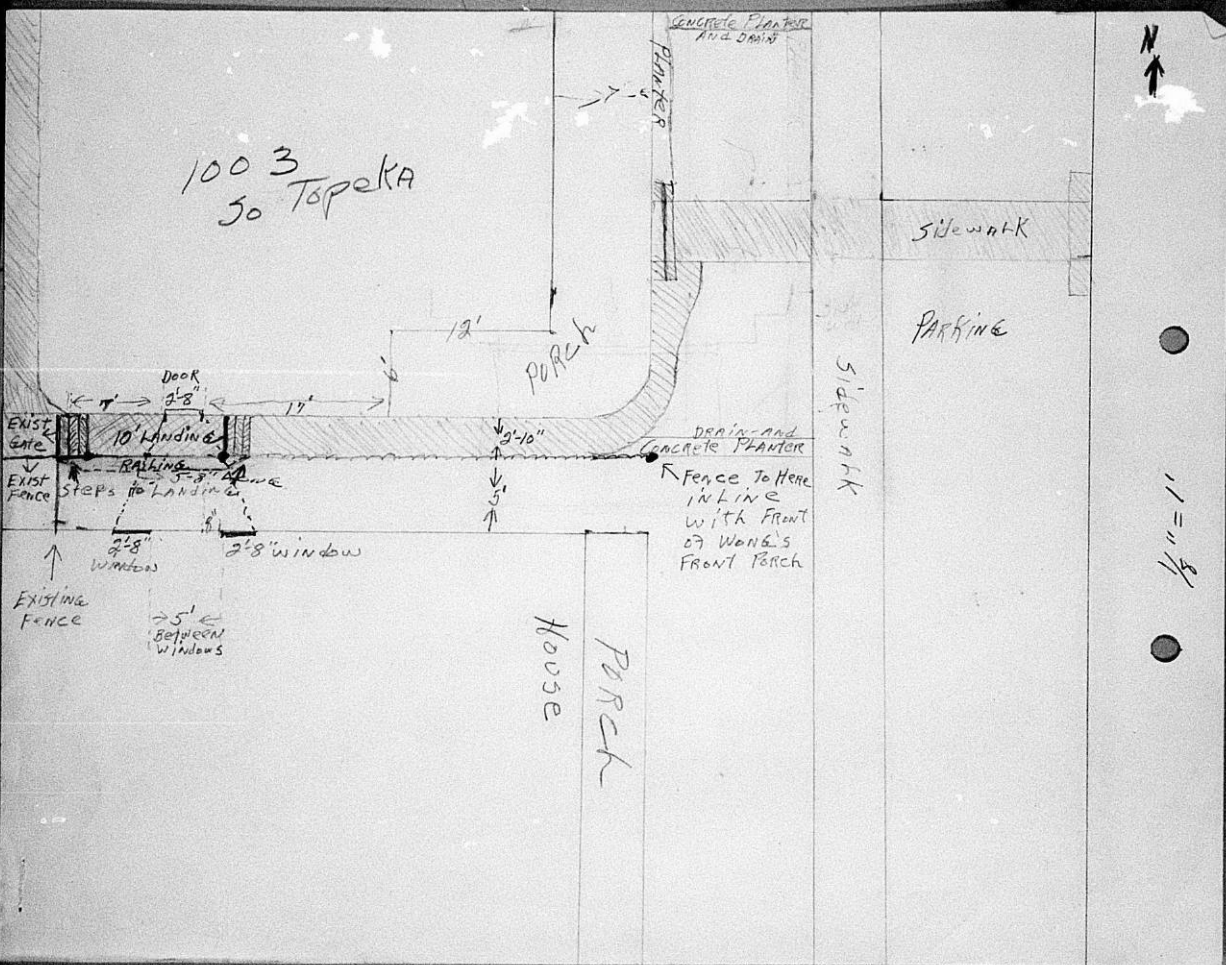 CONCRETE PLANTER
AND DRAIN
N
PLANTER
7'
1003
So Topeka
Sidewalk
PARKING
12'
PORCH
9'
DOOR
2'-8"
7'
17'
EXIST
GATE
10' LANDING
2'-10"
DRAIN-AND
CONCRETE PLANTER
Sidewalk
RAILING
EXIST
FENCE
STEPS TO LANDING
5'-8"
5'
FENCE TO HERE
IN LINE
WITH FRONT
OF WONG'S
FRONT PORCH
1/8" = 1'
8'
2'-8"
WINDOW
2'-8" WINDOW
EXISTING
FENCE
5'
BETWEEN
WINDOWS
House
PORCH